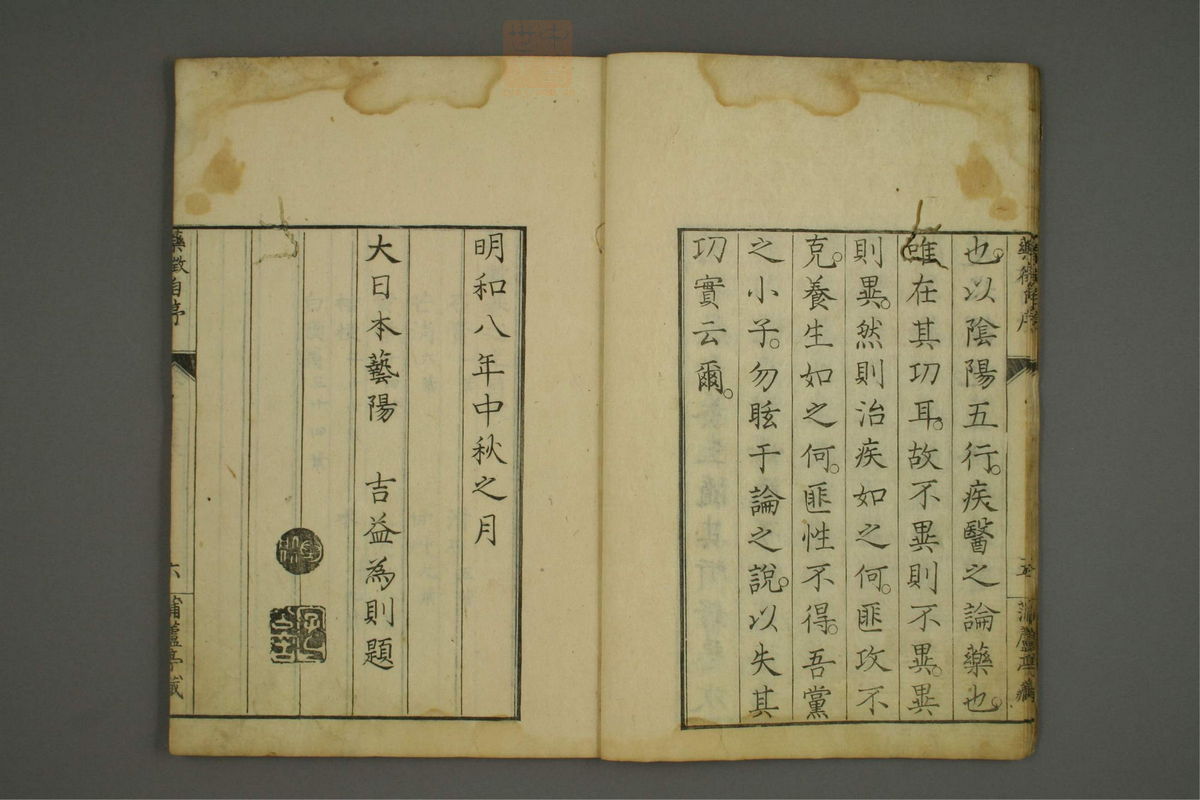 也。以陰陽五行。疾醫之論藥也。
唯在其功耳。故不異則不異。異
則異。然則治疾如之何。匪攻不
克。養生如之何。匪性不得。吾黨
之小子。勿眩于論之說。以失其
功實云爾。
明和八年中秋之月
大日本藝陽 吉益為則題
藥徵自序
六